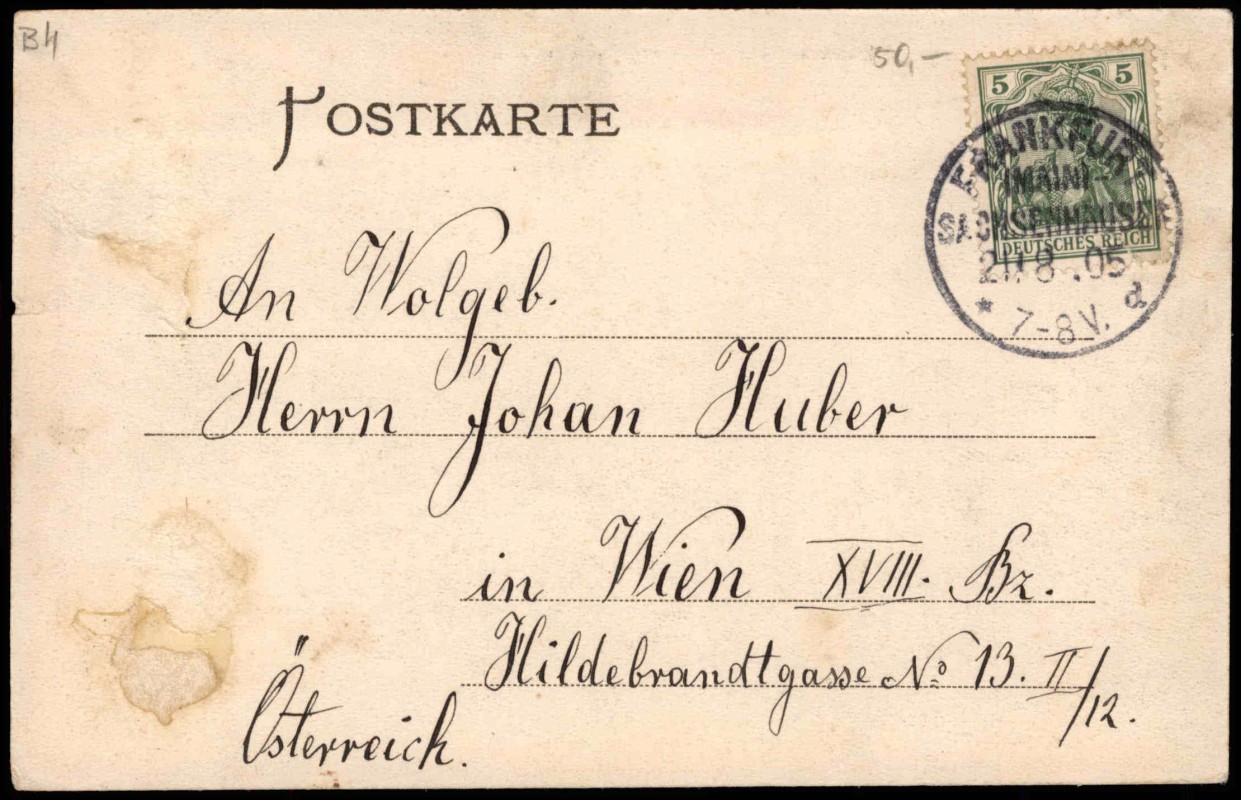 B4
50,-
POSTKARTE
5 5
FRANKFURT
(MAIN)-
SACHSENHAUSEN
DEUTSCHES REICH
8 .05
* 7-8V. d
An Wolgeb.
Herrn Johan Huber
in Wien XVIII. Bz.
Hildebrandtgasse No 13. II/12.
Österreich.